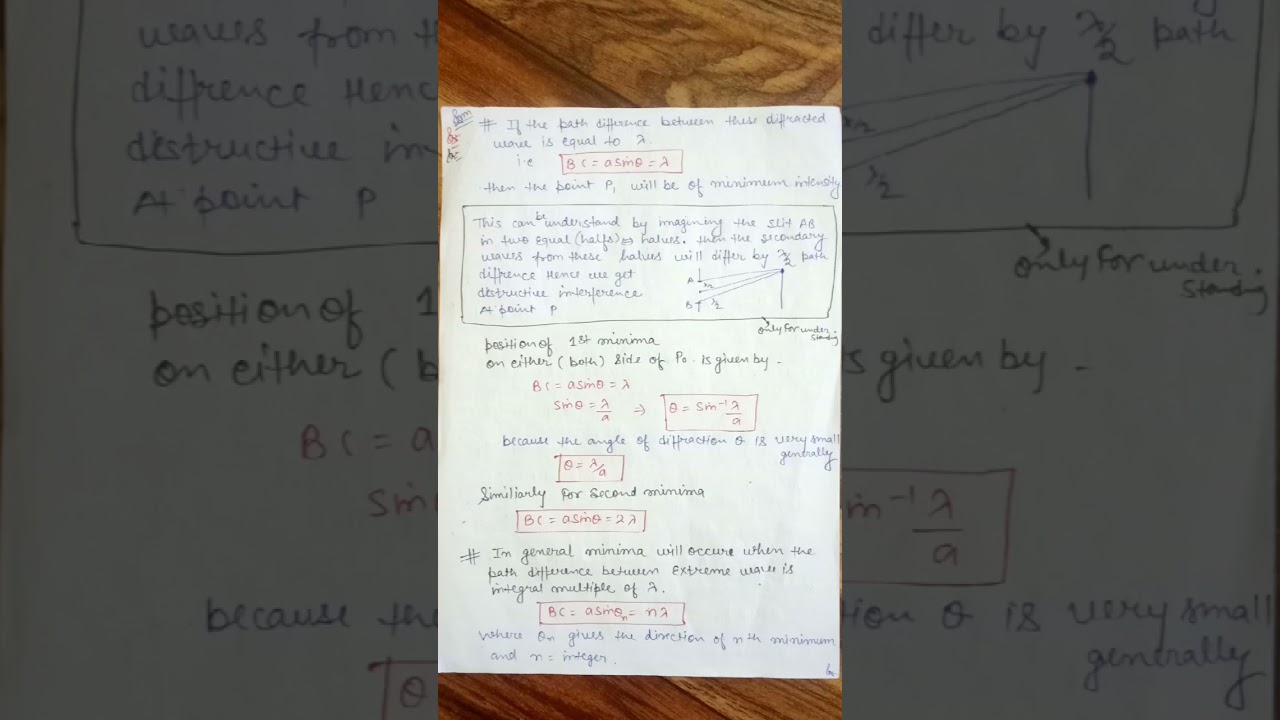 # If the path difference between these difracted
wave is equal to λ.
i.e BC = a sinθ = λ
then the point P₁ will be of minimum intensity
This can be understand by imagining the slit AB
in two equal (halfs) ⇔ halves. then the secondary
waves from these halves will differ by λ/2 path
diffrence Hence we get
destructive interference
At point P
A
λ/2
B
λ/2
only for under
standing
position of 1st minima
on either (both) side of P₀ is given by -
BC = a sinθ = λ
sinθ = λ/a ⇒ θ = sin⁻¹ λ/a
because the angle of diffraction θ is very small
generally
θ = λ/a
Similiarly for second minima
BC = a sinθ = 2λ
# In general minima will occure when the
path difference between extreme wave is
integral multiple of λ.
BC = a sinθₙ = nλ
where θₙ gives the direction of nth minimum
and n = integer.